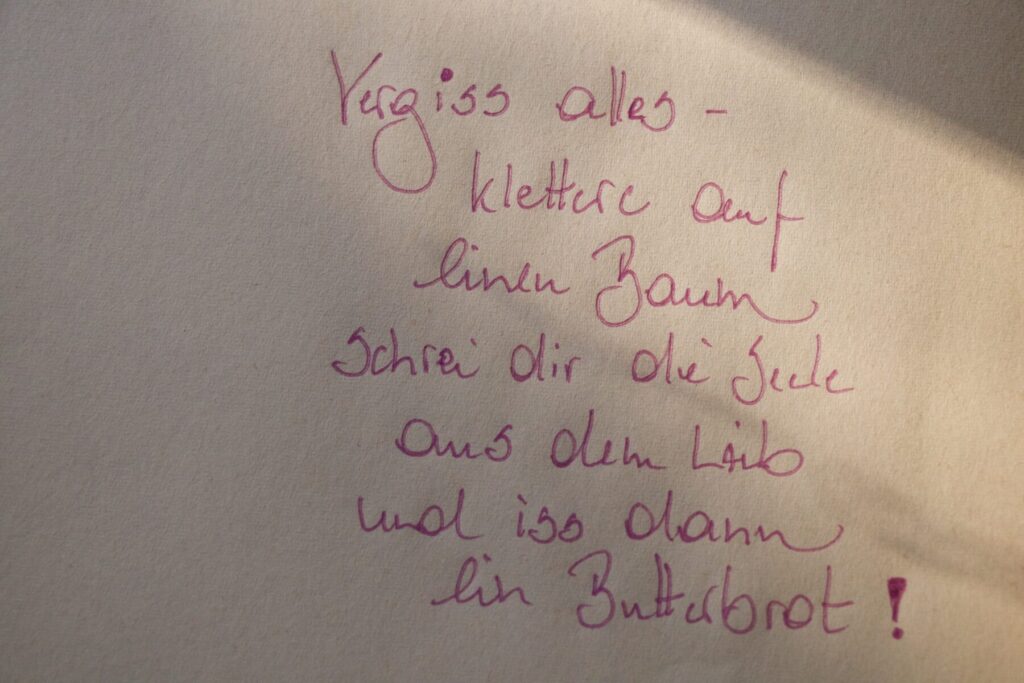 Vergiss alles -
klettere auf
einen Baum
schrei dir die Seele
aus dem Leib
und iss dann
ein Butterbrot!